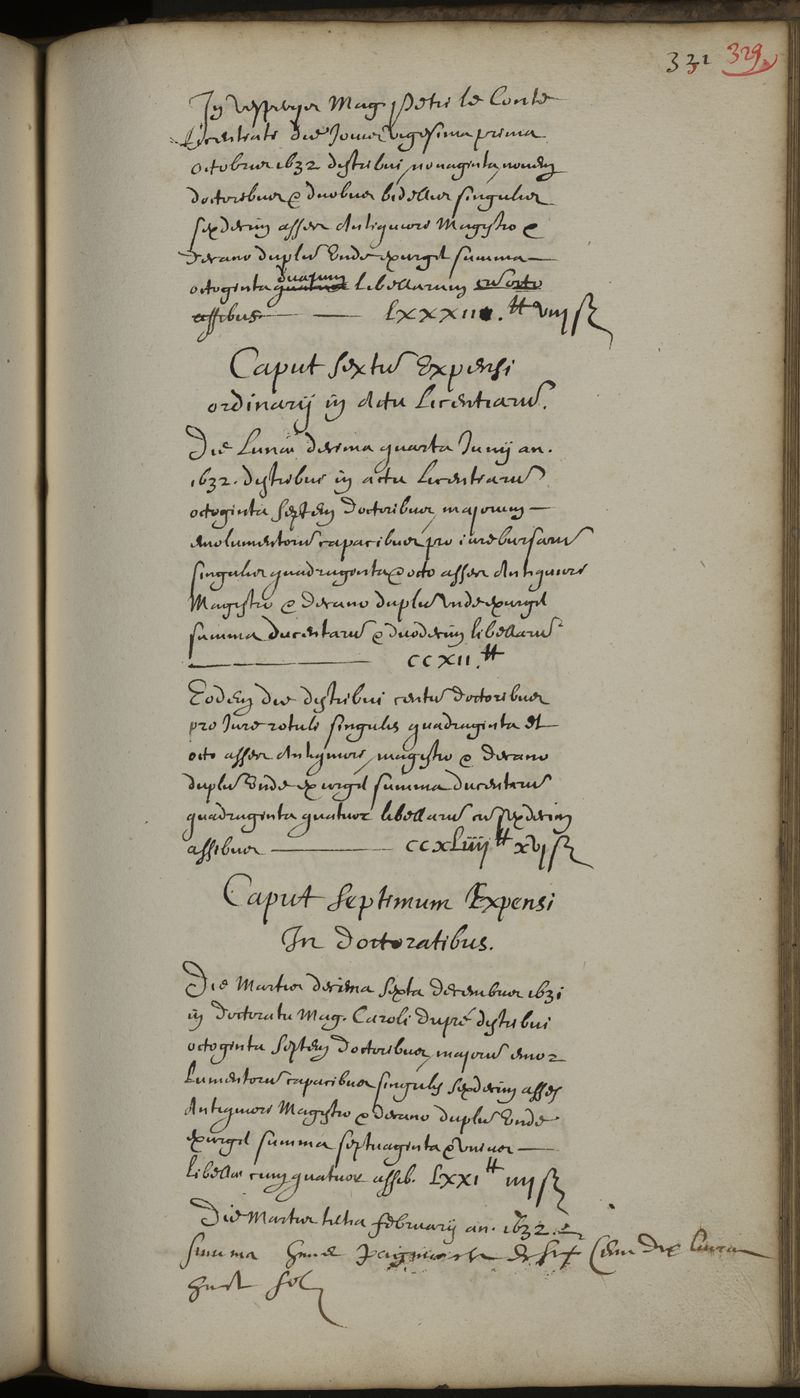 331 329
In vesperijs Mag. Petri le Conte
Licentiati die Jovis vigesima prima
octobris 1632 distribui nonaginta novem
doctoribus & duobus bidellis singulis
sexdecim asses Antiquiori Magistro &
Decano duplum Unde exurgit summa
octoginta duarum libellarum cum octo
assibus LXXXII.tt VIIJ ſ
Caput sextum Expensi
ordinarij in Actu Licentiarum.
Die Lunae decima quarta Junij an.
1632. distribui in actu Licentiarum
octoginta septem Doctoribus majorum
emolumentorum capacibus pro iure bursarum
singulis quadraginta & octo asses Antiquiori
Magistro & Decano duplum Unde exurgit
summa ducentarum & duodecim libellarum
CCXII.tt
Eodem die distribui centum doctoribus
pro Jure rotuli singulis quadraginta et
octo asses Antiquiori magistro & Decano
duplum Unde exurgit summa ducentarum
quadraginta quatuor libellarum cum sexdecim
assibus CCXLIIIJ tt XVJ ſ
Caput septimum Expensi
In doctoratibus.
Die Martis decima sexta decembris 1631
in doctoratu Mag. Caroli Dupré distribui
octoginta septem Doctoribus majorum emo-
lumentorum capacibus singulis sexdecim asses
Antiquiori Magistro & Decano duplum Unde
exurgit summa septuaginta & unius
libellae cum quatuor assib. LXXI tt IIIJ ſ
Die Martis tertia februarij an. 1632.
summa six cem dix
huit sol